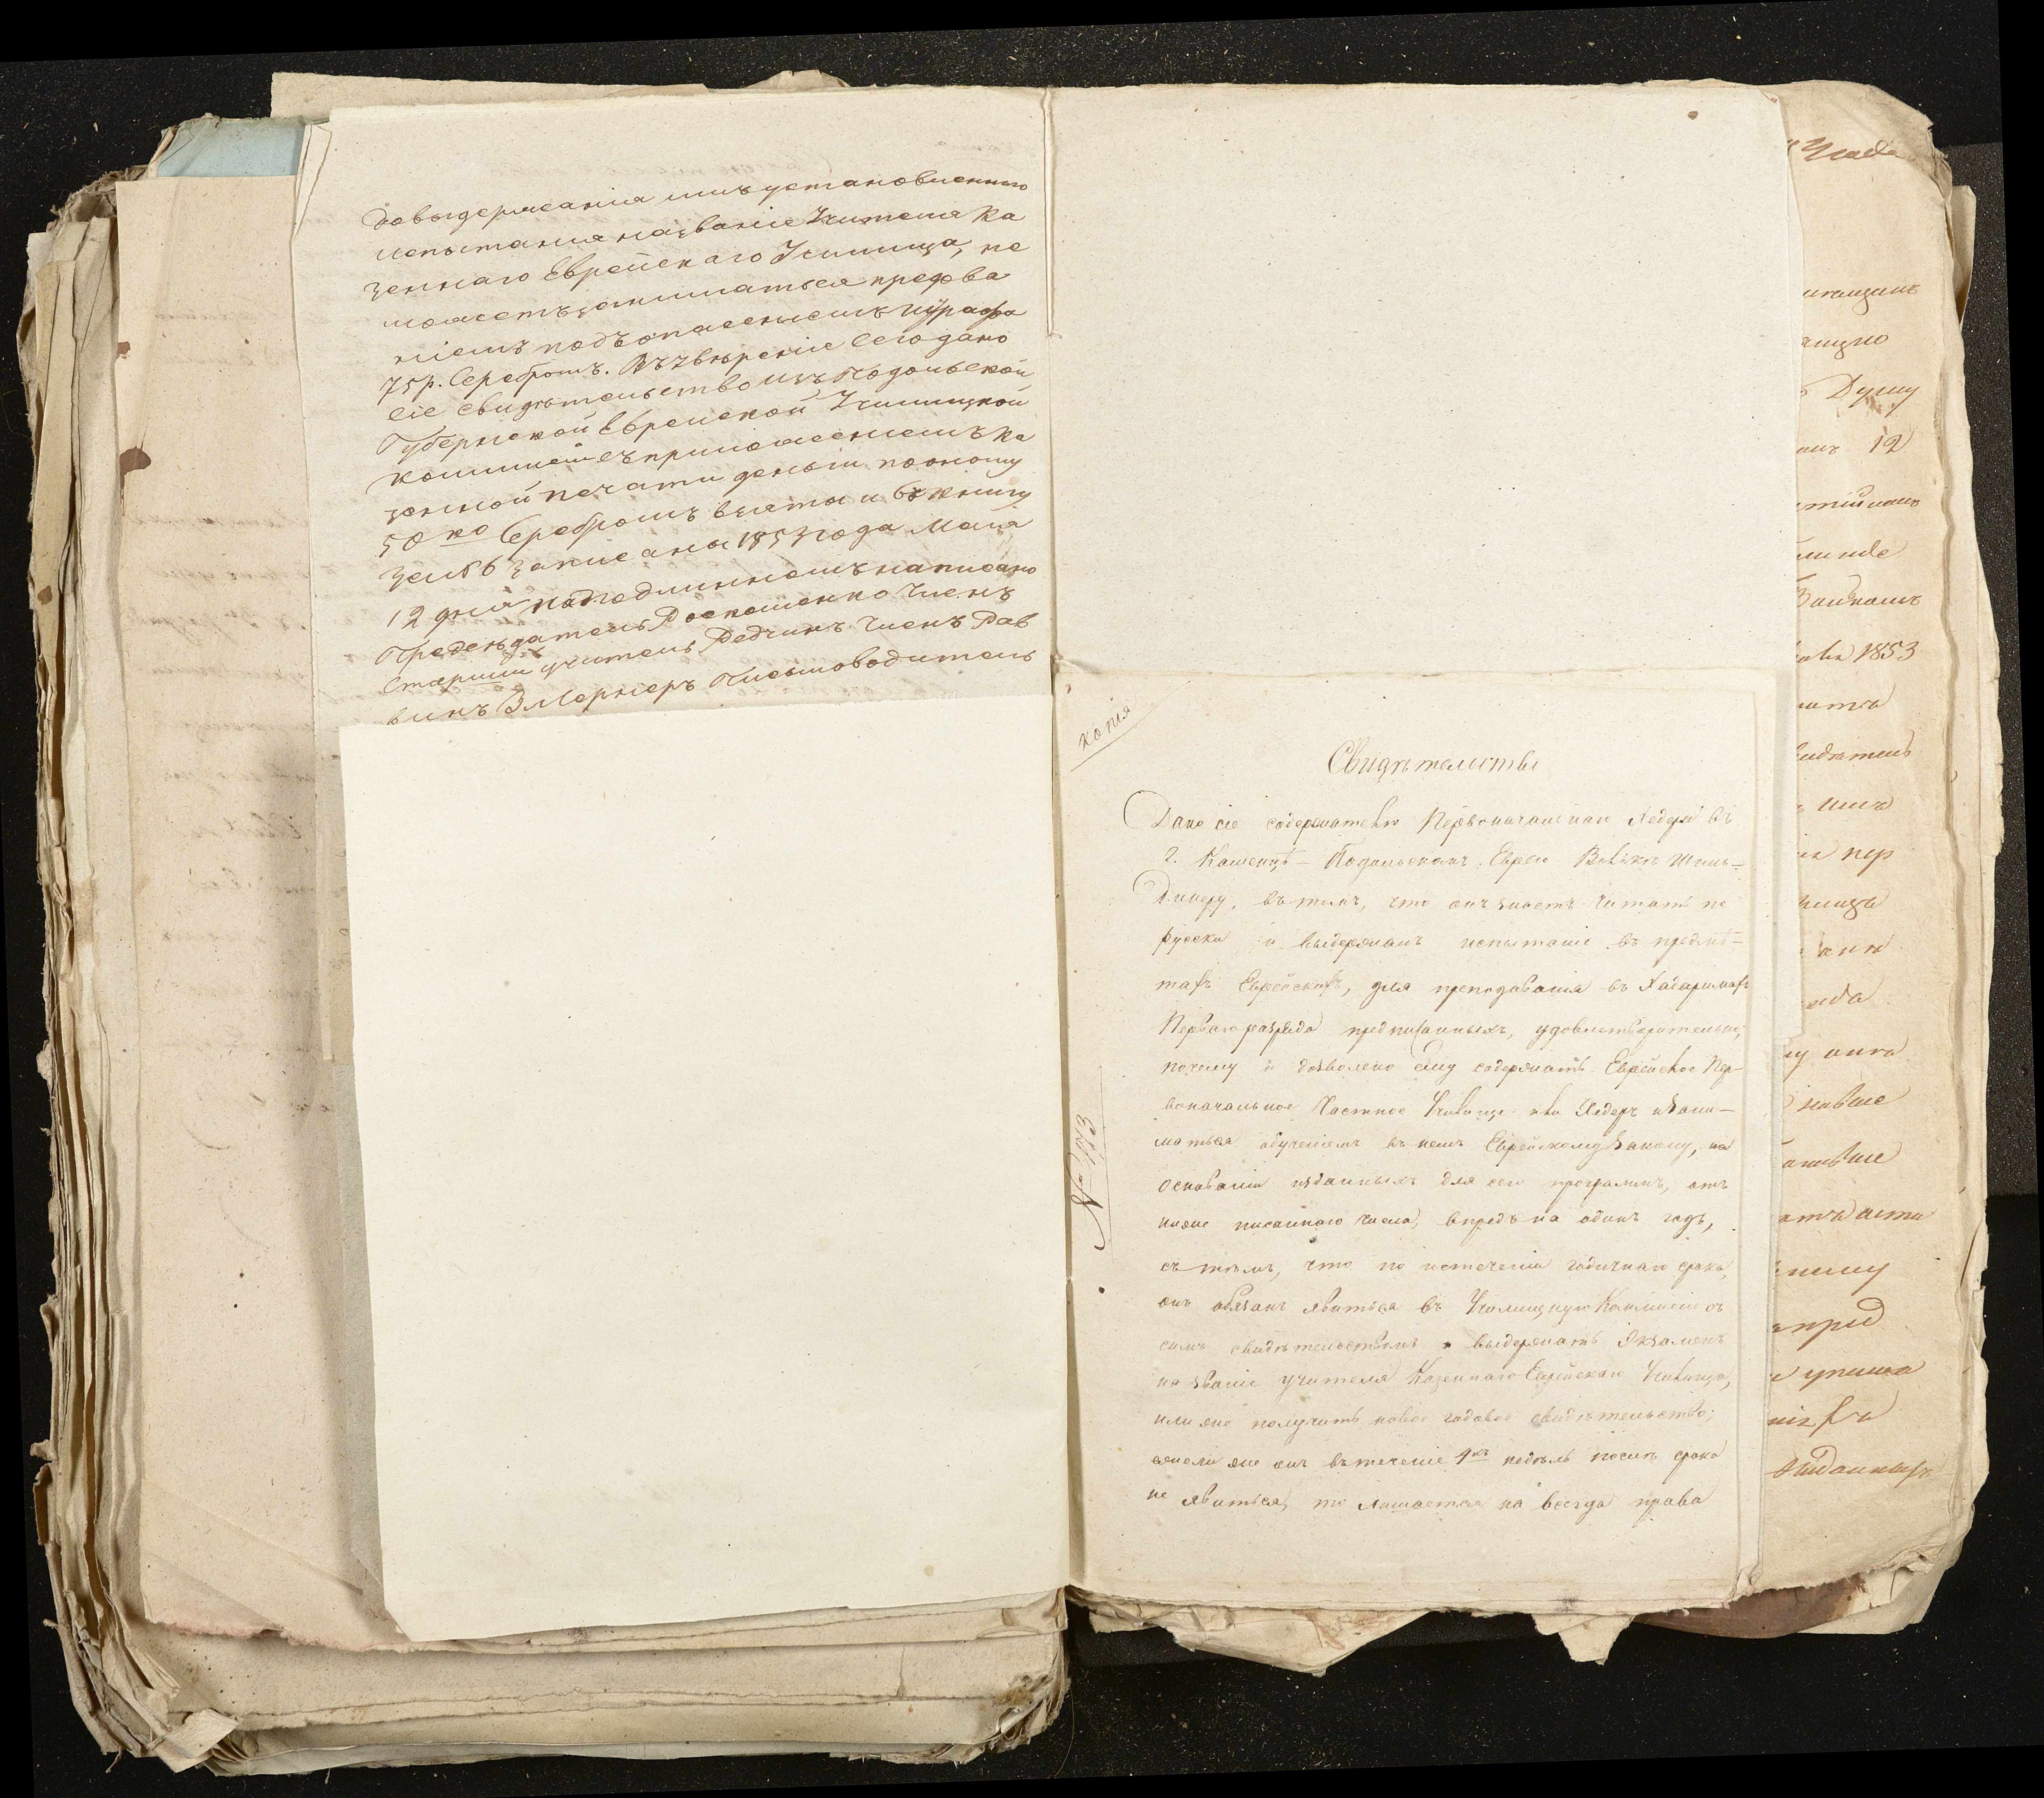 до выдержанія имъ установленнаго
испытанія на званіе Учителя Ка
зеннаго Еврейскаго Училища, не
можетъ заниматься препода
ніемъ подъ опасеніемъ штрафа
75 р. Серебромъ. Въ увѣреніе сего дано
сіе свидѣтельство изъ Подольской
Губернской Еврейской Училищной
коммисіи съ приложеніемъ ка
зенной печати деньги по оному
50 ко Серебромъ взяты и въ книгу
записаны 1853 года Мая
12 дня На подлинномъ написано
Председатель Доскошенко Членъ
Старшій учитель Редчинъ Членъ Рав
винъ Эльернеръ Письмоводитель
копія
Свидѣтельство
Дано сіе содержателю Первоначальнаго Хедера въ
г. Каменцѣ-Подольскомъ Еврею Волько Шиль-
Динеру, въ томъ, что онъ знаетъ читать по
русски и выдержалъ испытаніе въ предмѣ-
тахъ Еврейскихъ, для преподаванія въ Хадаримахъ
Перваго разряда предписанныхъ, удовлетворительно,
почему и дозволено ему содержать Еврейское Пер-
воначальное Частное Училище или Хедеръ и зани-
маться обученіемъ въ немъ Еврейскому Закону, на
основаніи изданныхъ для сего программъ, отъ
ниже писаннаго числа, впредь на одинъ годъ,
съ тѣмъ, что по истеченіи годичнаго срока,
онъ обязанъ явиться въ Училищную Коммисію съ
симъ свидѣтельствомъ и выдержать Экзаменъ
на званіе учителя Казеннаго Еврейскаго Училища,
или же получить новое годовое свидѣтельство;
ежели же онъ въ теченіе 4хъ недѣль послѣ срока
не явиться, то лишается на всегда права
№ 173
Думу
12
1853